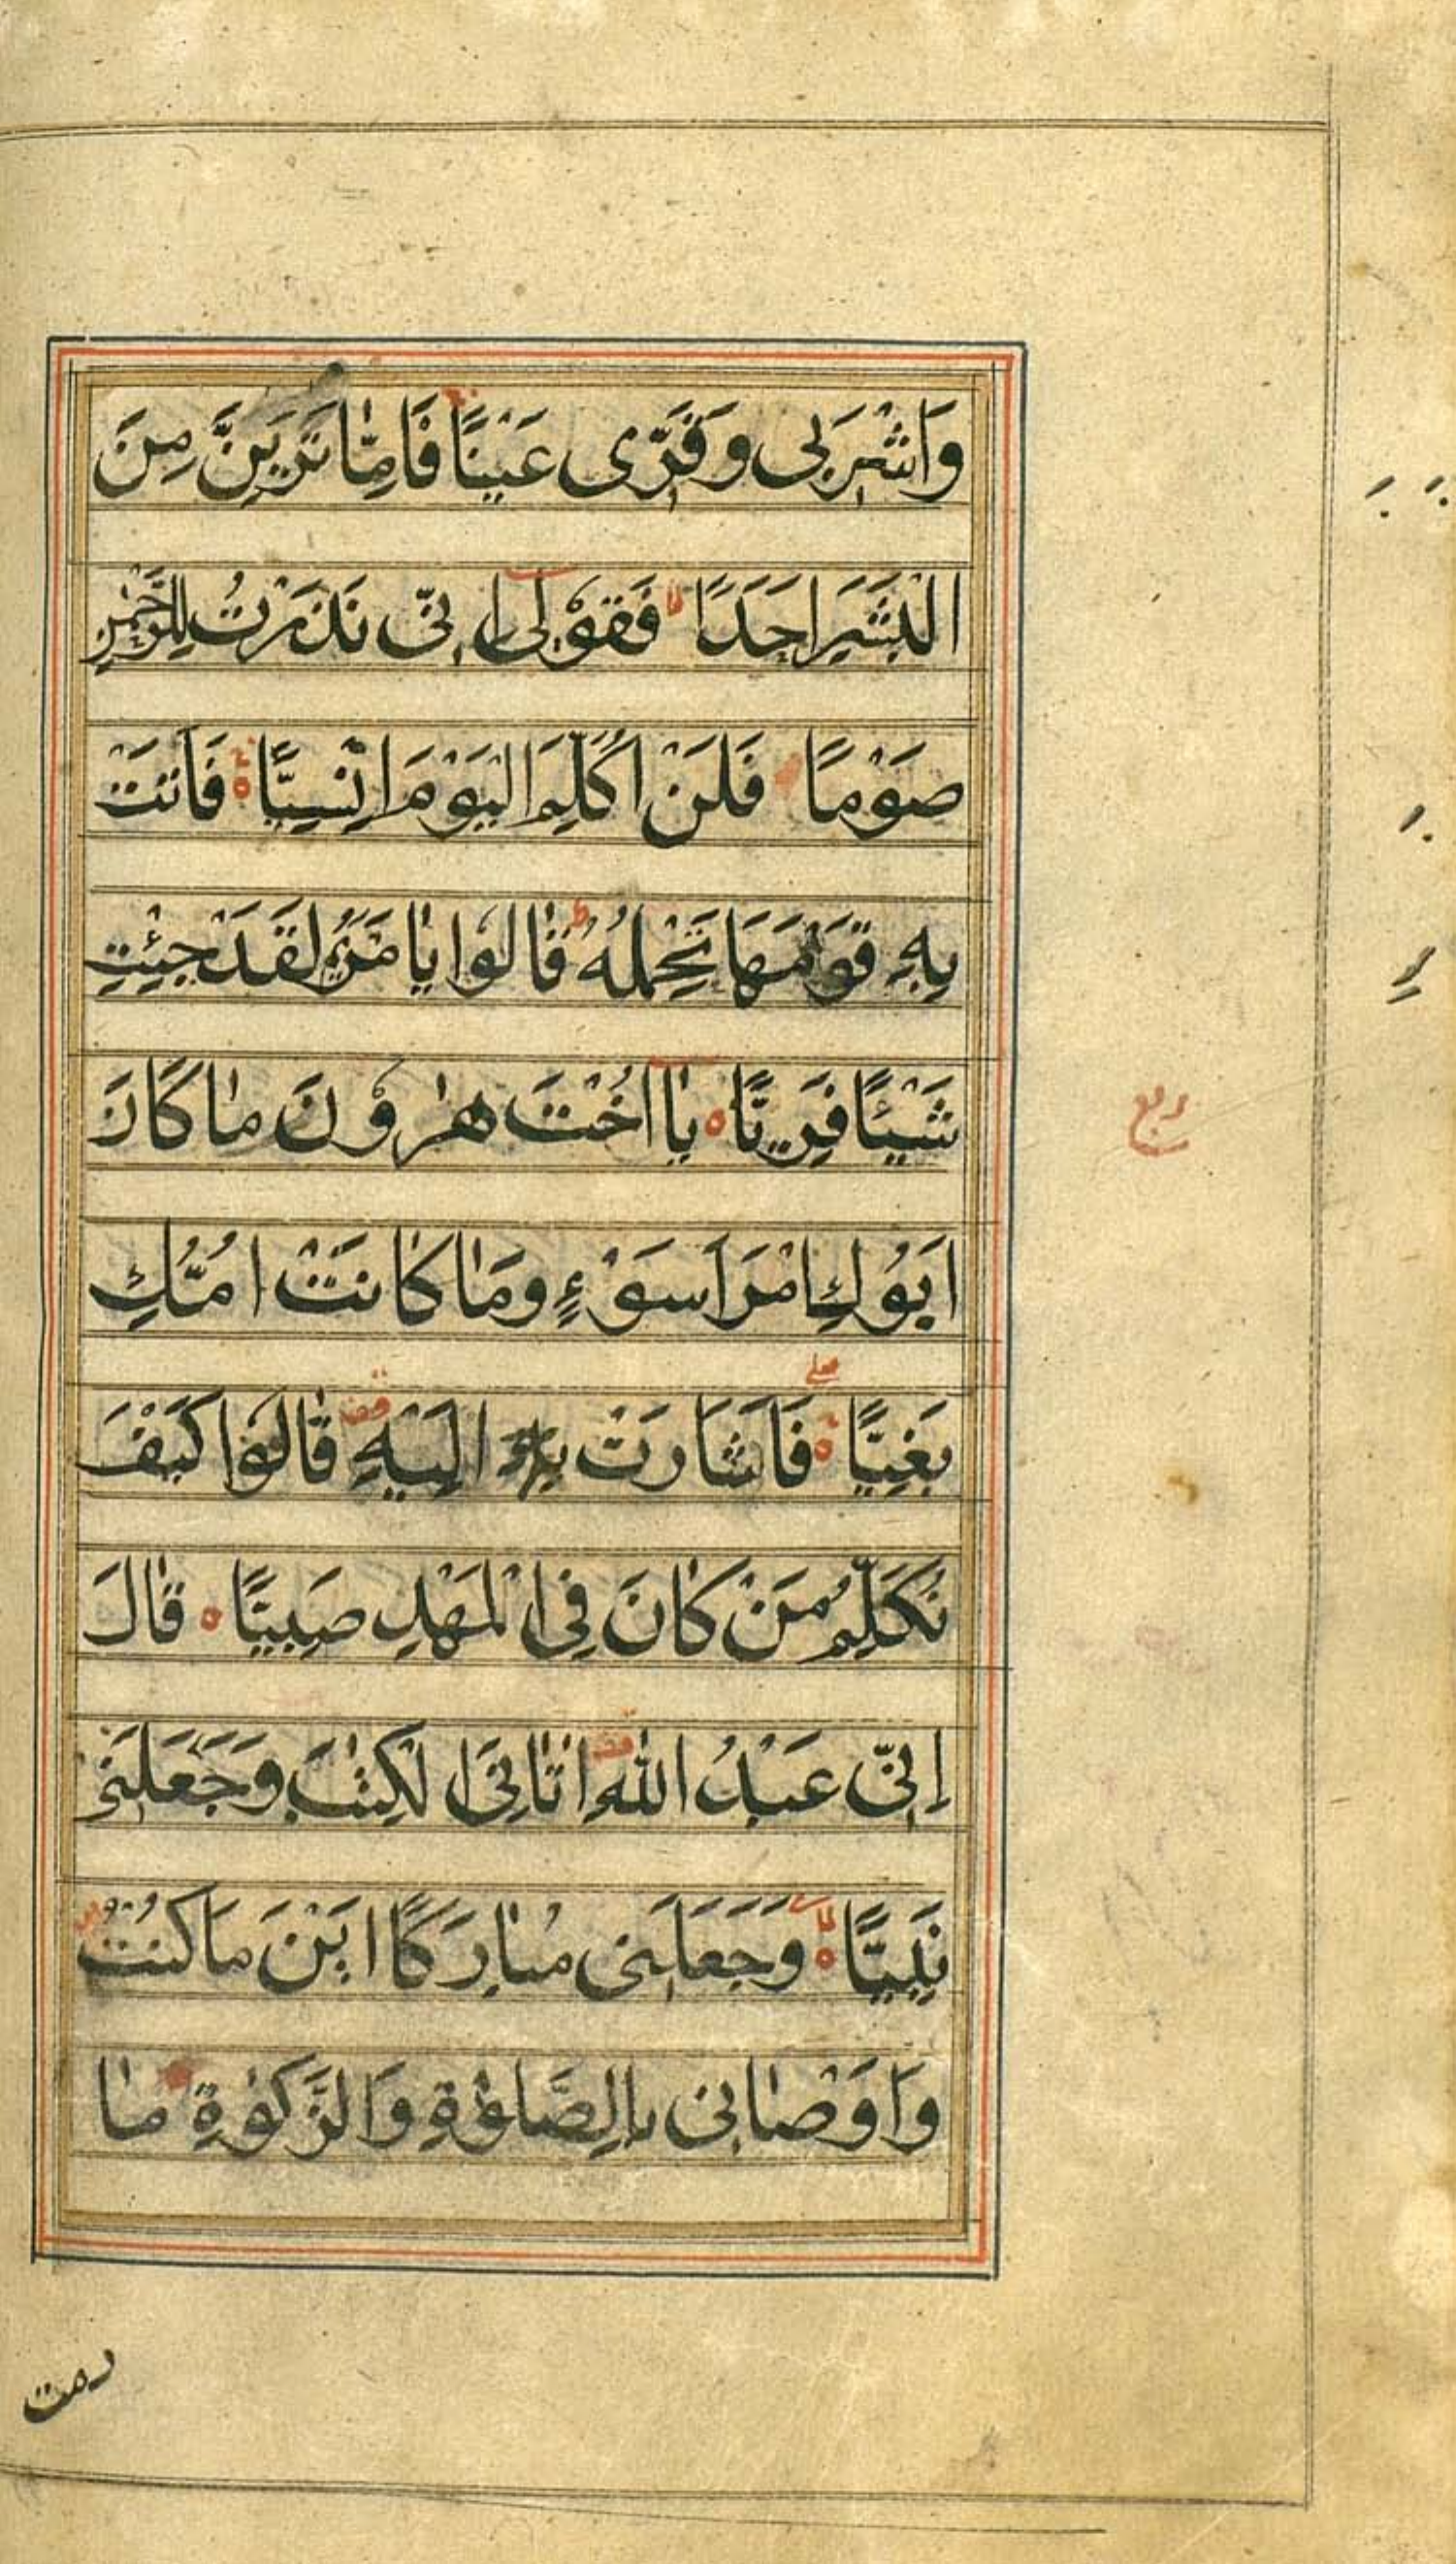 وَاشْرَبِی وَقَرِّی عَیْنًا فَاِمّٰا تَرَیِنَّ مِنَ
الْبَشَرِ اَحَدًا فَقُوْلِی اِنِّی نَذَرْتُ لِلرَّحْمٰنِ
صَوْمًا فَلَنْ اُكَلِّمَ الْیَوْمَ اِنْسِیًّا فَاَتَتْ
بِهِ قَوْمَهَا تَحْمِلُهُ قٰالُوا یٰا مَرْیَمُ لَقَدْ جِئْتِ
شَیْئًا فَرِیًّا یٰا اُخْتَ هٰرُوْنَ مٰا كَانَ
اَبُوْكِ امْرَاَ سَوْءٍ وَمٰا كٰانَتْ اُمُّكِ
بَغِیًّا فَاَشَارَتْ اِلَیْهِ قٰالُوا كَیْفَ
نُكَلِّمُ مَنْ كٰانَ فِی الْمَهْدِ صَبِیًّا قٰالَ
اِنِّی عَبْدُ اللّٰهِ اٰتٰانِیَ الْكِتٰبَ وَجَعَلَنِی
نَبِیًّا وَجَعَلَنِی مُبٰارَكًا اَیْنَ مَا كُنْتُ
وَاَوْصٰانِی بِالصَّلٰوةِ وَالزَّكٰوةِ مٰا
ربع
دمت